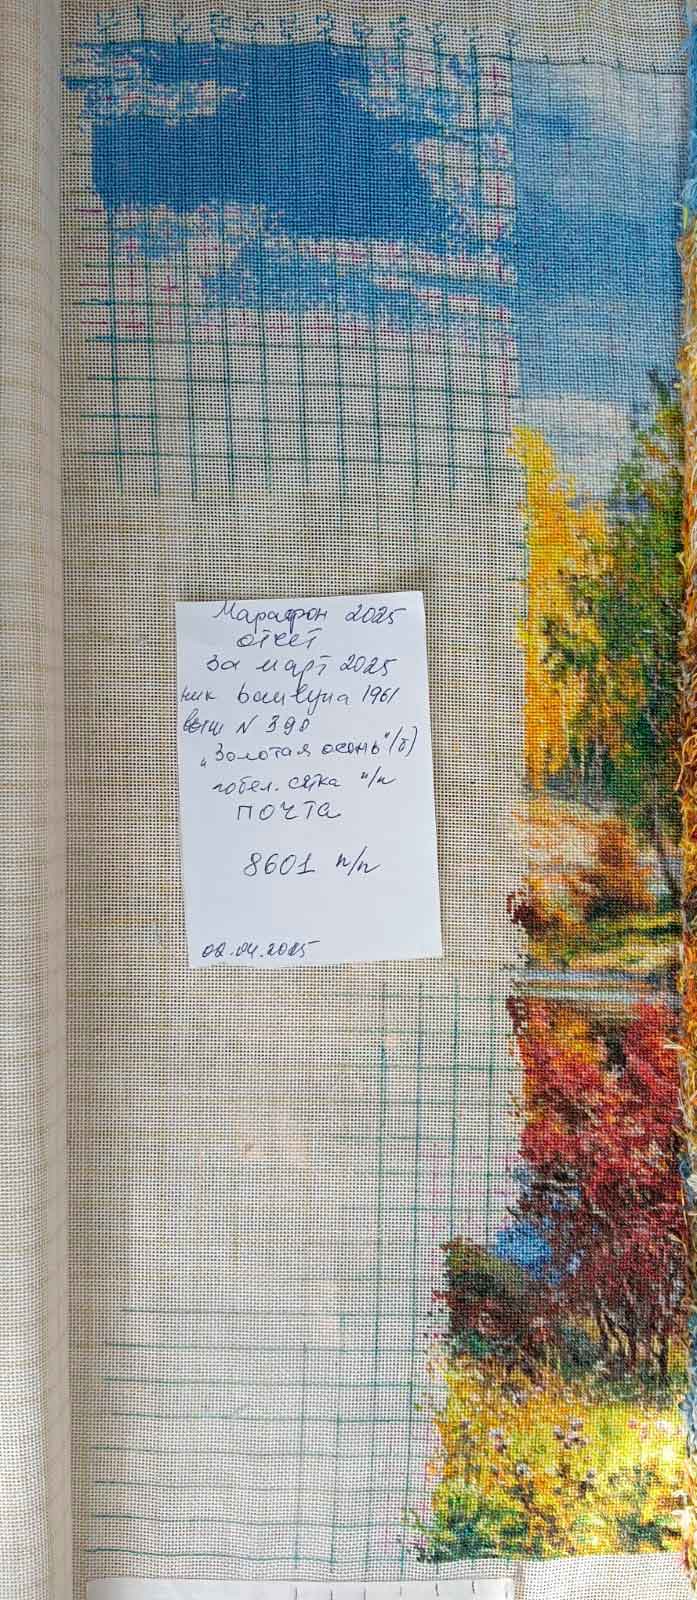 Марафон 2025
отчет
за март 2025
ник 1961
N 390
"Золотая осень" (б)
гобел. сетка п/к
ПОЧТА
8601 п/к
02.04.2025